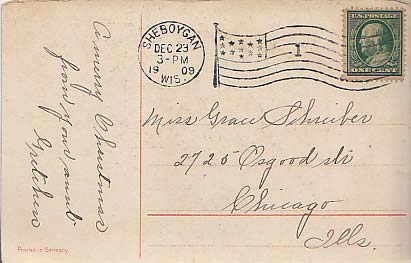 A merry Christmas
from your aunt
Gretchen
SHEBOYGAN
DEC 23
3-PM
1909
WIS.
1
U.S. POSTAGE
ONE CENT
Miss Grace Schreiber
2725 Osgood str
Chicago
Ills.
Printed in Germany.